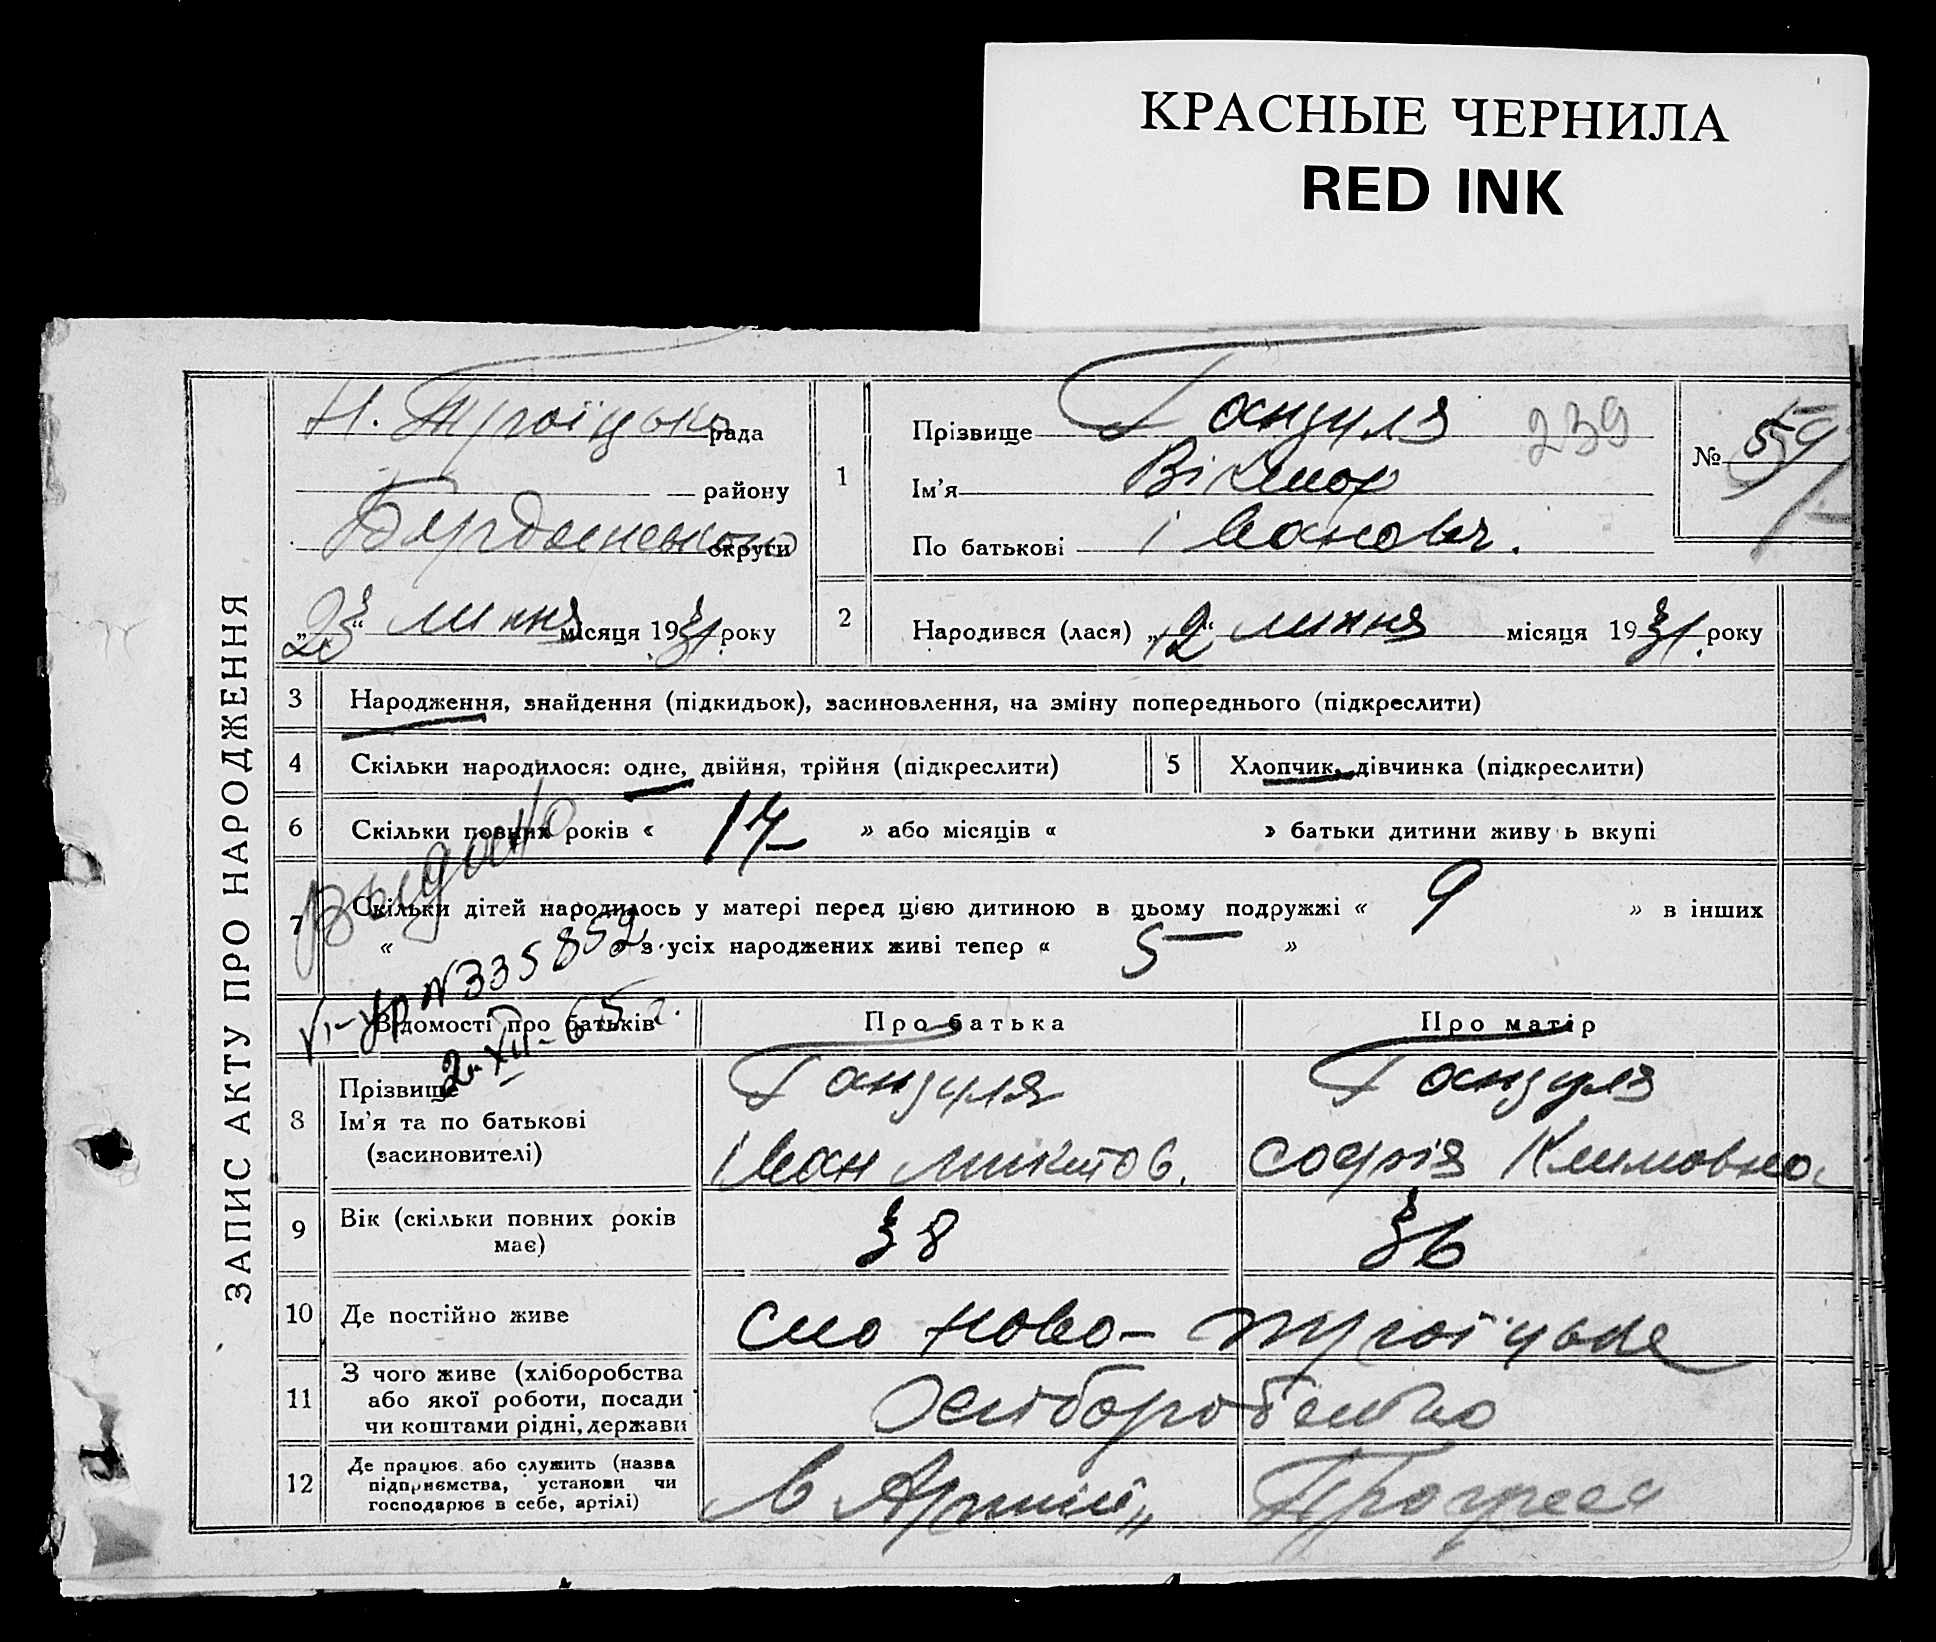 КРАСНЫЕ ЧЕРНИЛА
RED INK
ЗАПИС АКТУ ПРО НАРОДЖЕННЯ
Н. Троїцько рада
району
Бердянсько округи
„23“ липня місяця 1931 року
1
Прізвище Ганзуля 239
Ім'я Віктор
По батькові Іванович.
№ 59
2 Народився (лася) „12“ липня місяця 1931 року
3 Народження, знайдення (підкидьок), засиновлення, на зміну попереднього (підкреслити)
4 Скільки народилося: одне, двійня, трійня (підкреслити) 5 Хлопчик, дівчинка (підкреслити)
6 Скільки повних років « 14 » або місяців « » батьки дитини живуть вкупі
7 Скільки дітей народилось у матері перед цією дитиною в цьому подружжі « 9 » в інших
« » з усіх народжених живі тепер « 5 »
Выдано
VI-УР № 335852
2-XII-65 г.
Відомості про батьків Про батька Про матір
8 Прізвище Ганзуля Ганзуля
Ім'я та по батькові
(засиновителі) Іван Микитов. Софія Климовна
9 Вік (скільки повних років
має) 38 36
10 Де постійно живе село Ново-Троїцьке
11 З чого живе (хліборобства
або якої роботи, посади
чи коштами рідні, держави Хліборобство
12 Де працює або служить (назва
підприємства, установи чи
господарює в себе, артілі) в Артілі „Прогрес